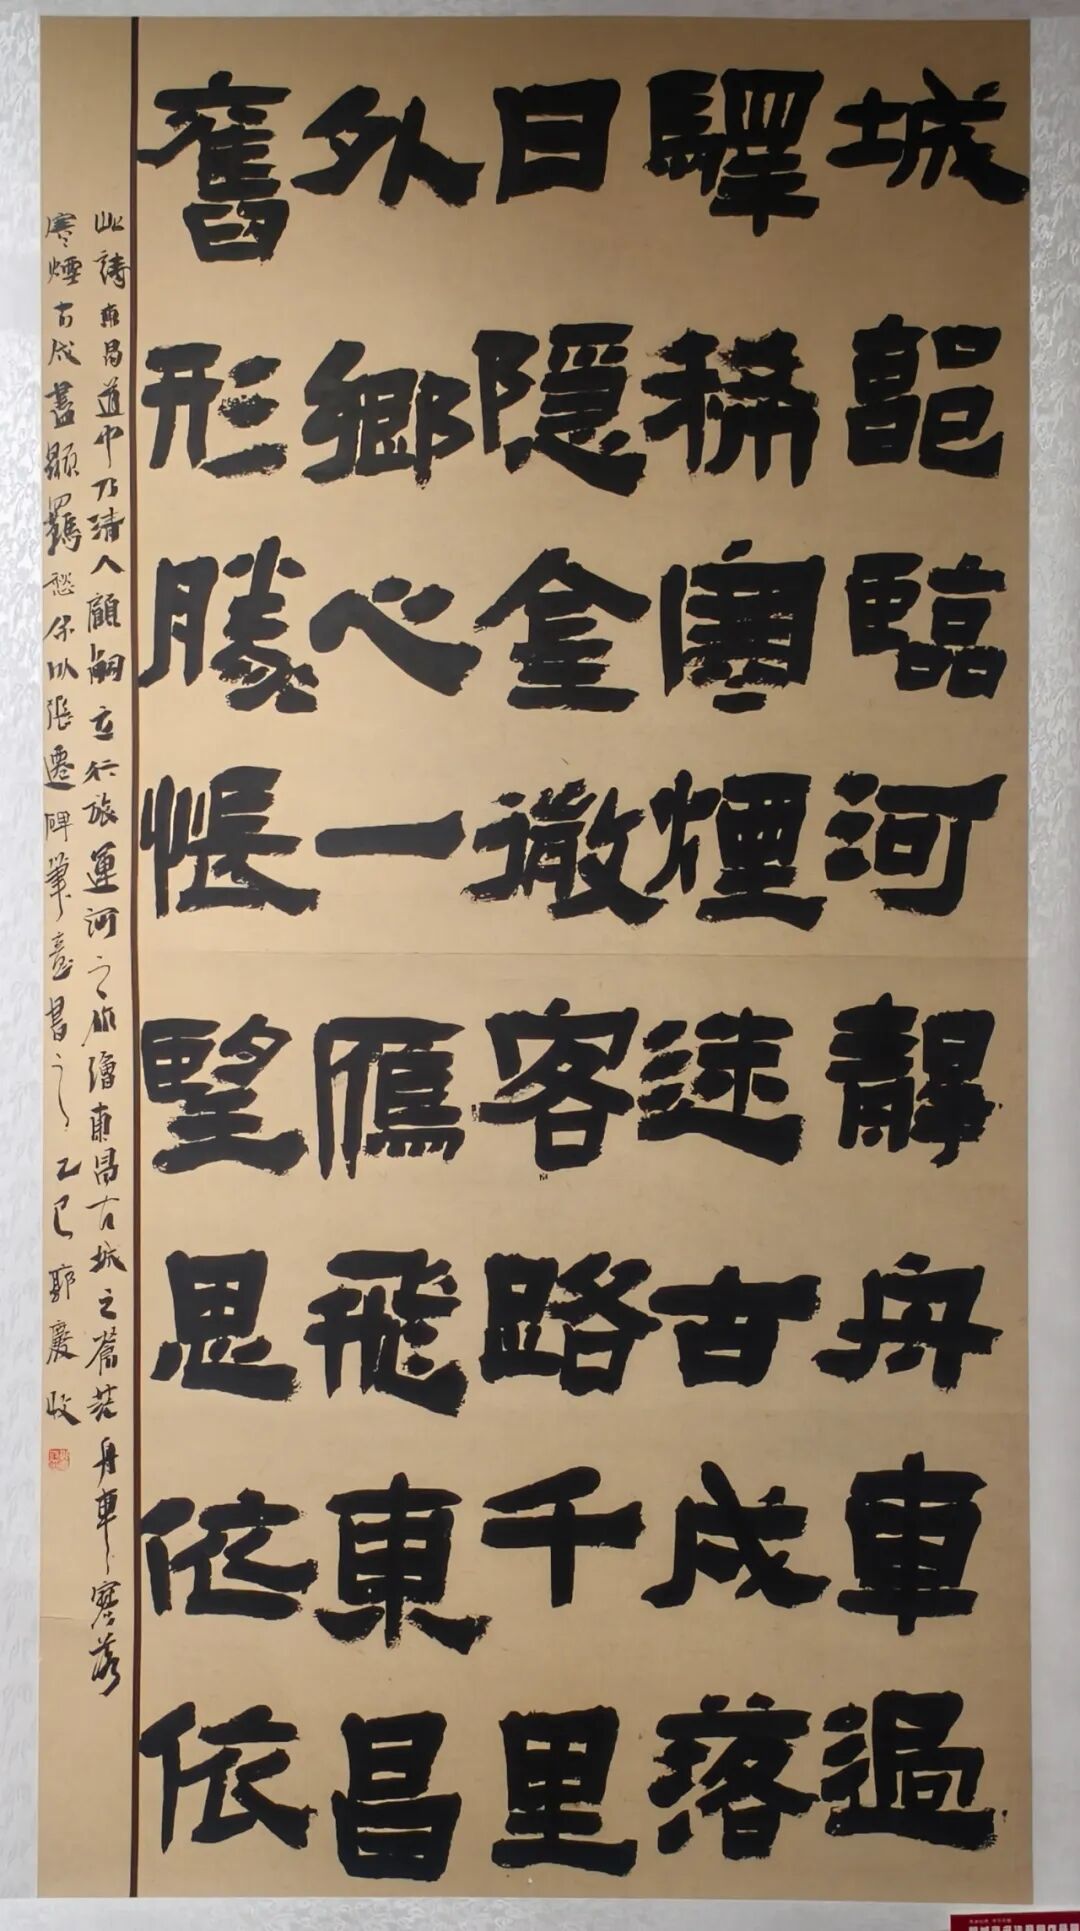 城郭臨河靜舟車過
驛稀寒煙迷古戍落
日隱金微客路千里
外鄉心一鴈飛東昌
舊形勝悵望思依依
此詩東昌道中乃清人顧嗣立行旅運河之作繪東昌古城之蒼茫舟車寥落
寒煙古戍盡顯羈愁余以張遷碑筆意書之乙巳郭慶收